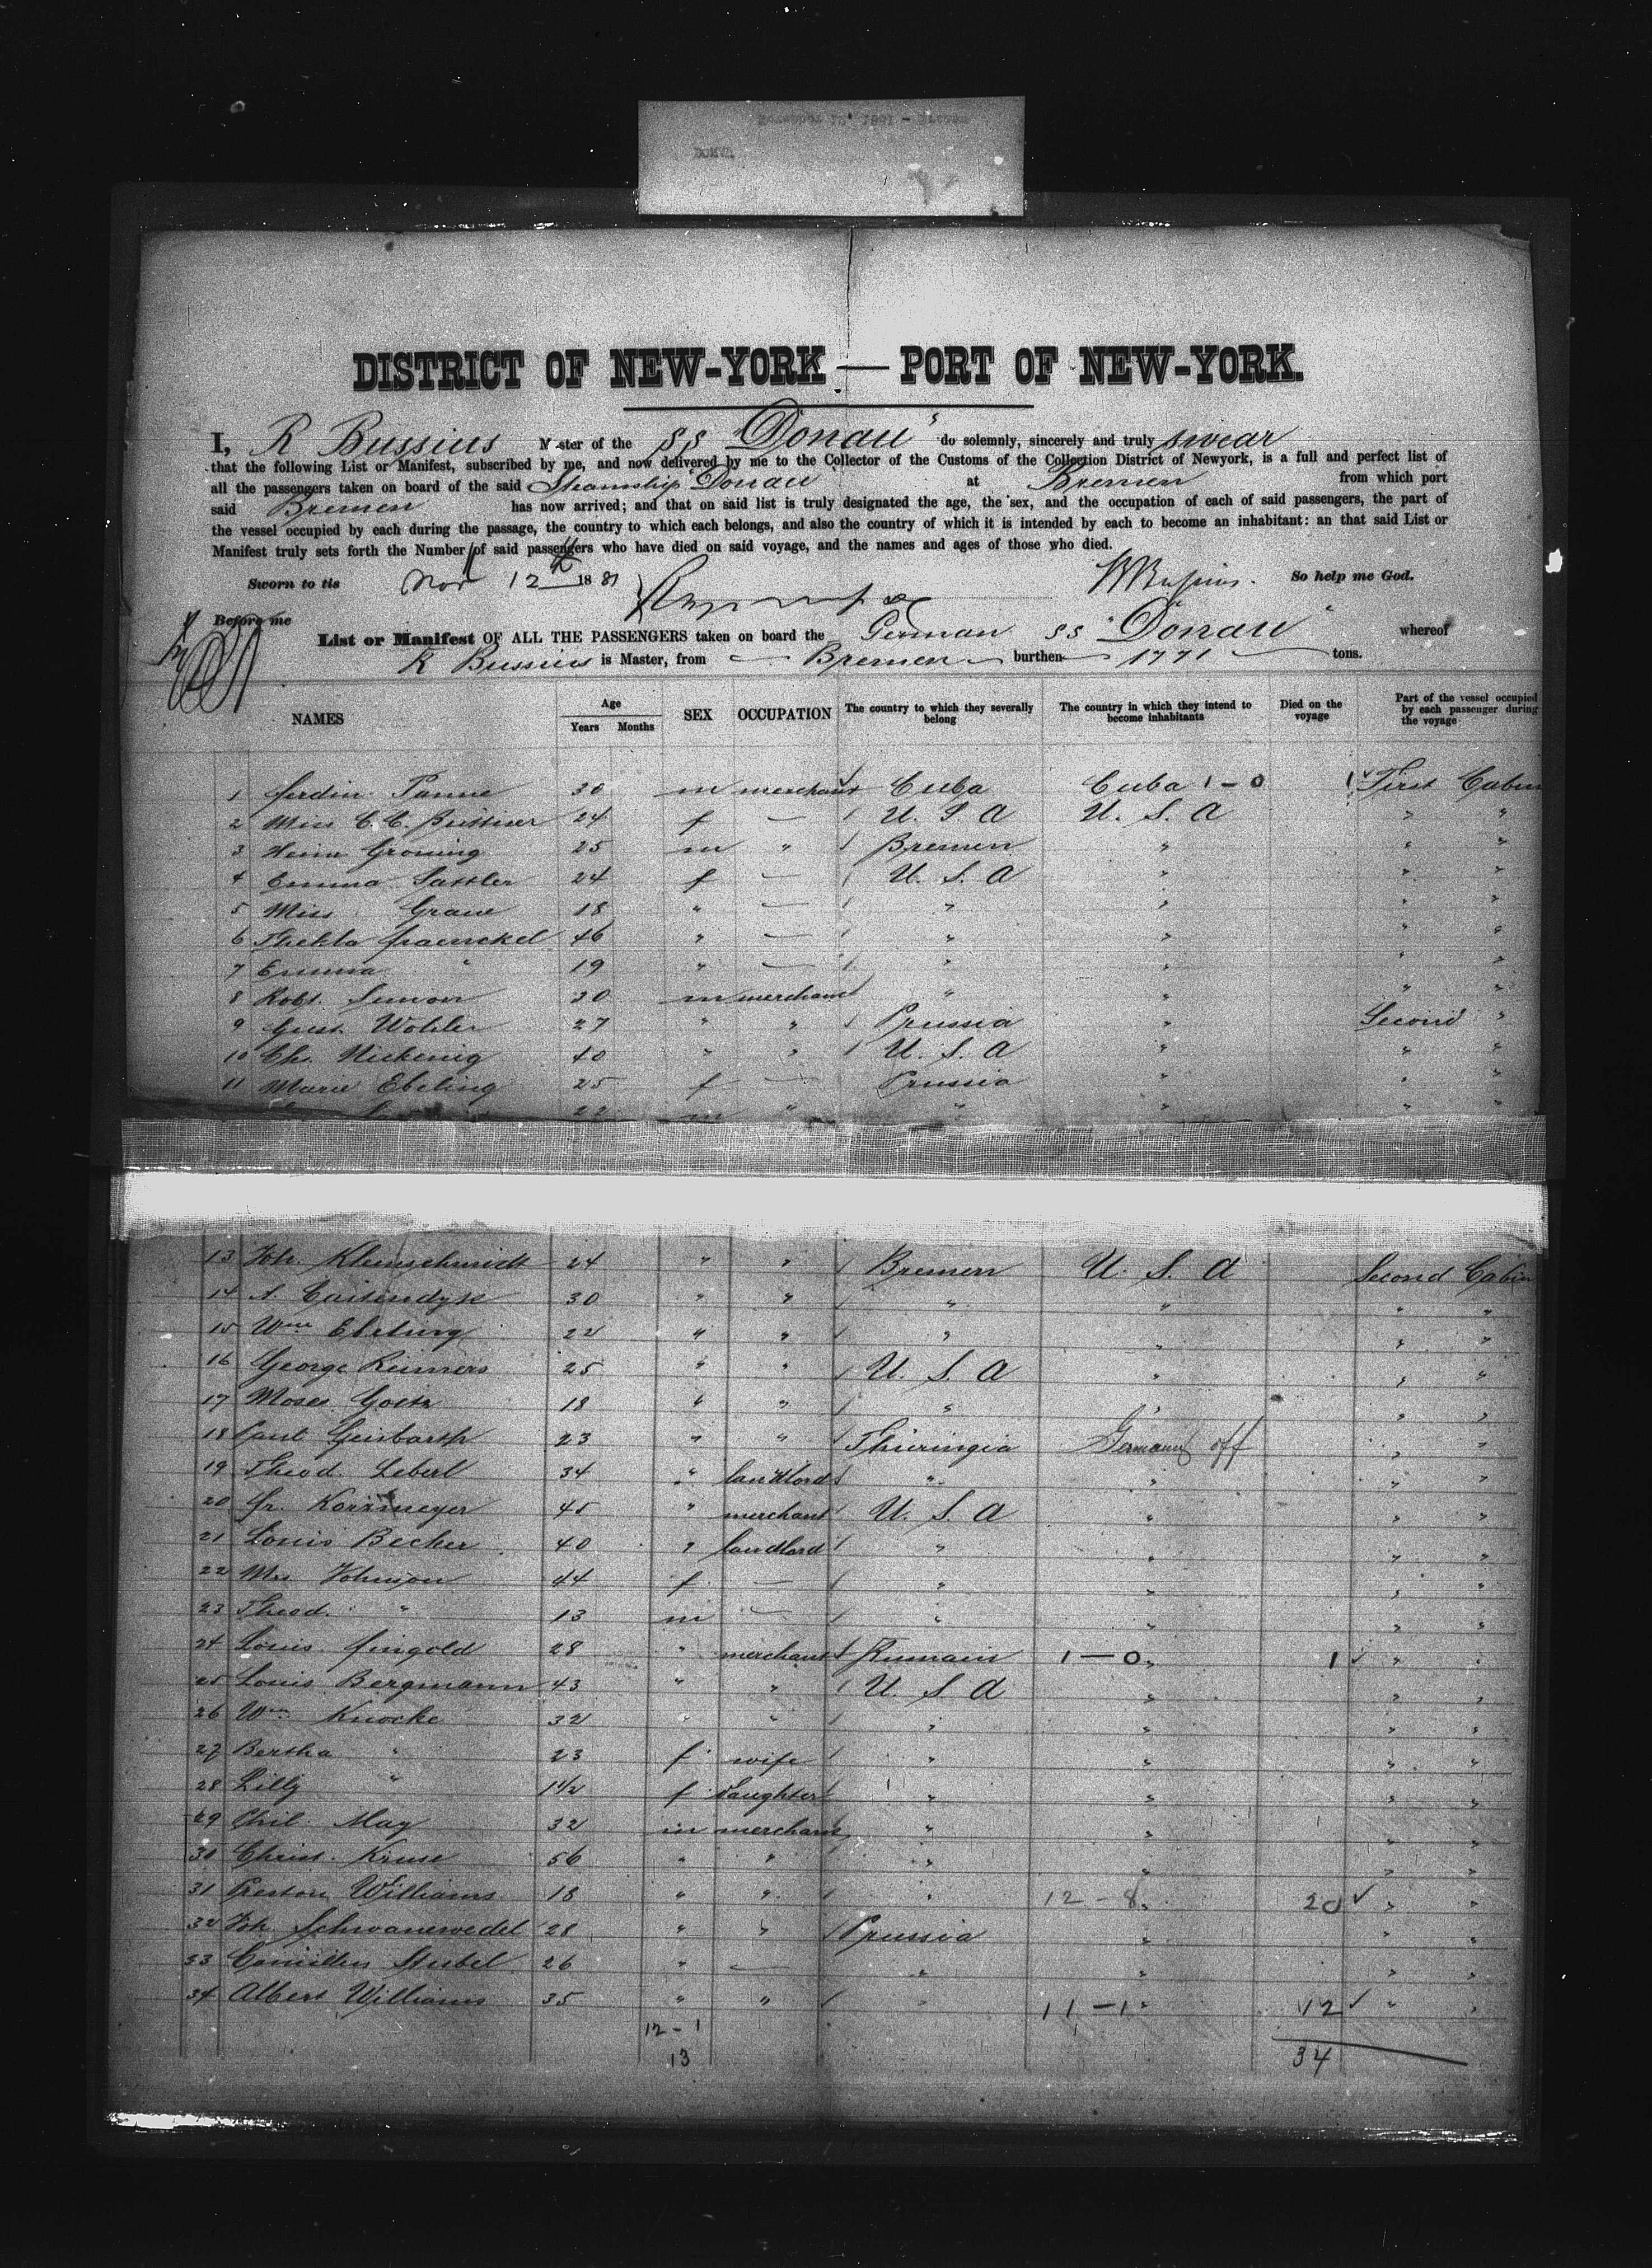 DISTRICT OF NEW-YORK — PORT OF NEW-YORK.
I, R Bussius Master of the SS "Donau" do solemnly, sincerely and truly swear
that the following List or Manifest, subscribed by me, and now delivered by me to the Collector of the Customs of the Collection District of Newyork, is a full and perfect list of
all the passengers taken on board of the said Steamship Donau at Bremen from which port
said Bremen has now arrived; and that on said list is truly designated the age, the sex, and the occupation of each of said passengers, the part of
the vessel occupied by each during the passage, the country to which each belongs, and also the country of which it is intended by each to become an inhabitant: an that said List or
Manifest truly sets forth the Number of said passengers who have died on said voyage, and the names and ages of those who died.
Sworn to tis Nov 12th 1881 So help me God.
Before me
List or Manifest OF ALL THE PASSENGERS taken on board the German SS "Donau" whereof
R Bussius is Master, from Bremen burthen 1771 tons.
NAMES Age Years Months SEX OCCUPATION The country to which they severally belong The country in which they intend to become inhabitants Died on the voyage Part of the vessel occupied by each passenger during the voyage
1 Ferdin. 30 m merchant Cuba Cuba 1-0 1 First Cabin
2 Miss C. C. 24 f — U. S. A U. S. A " "
3 Groning 25 m " Bremen " " "
4 Emma Sattler 24 f — U. S. A " " "
5 Miss Graue 18 " — " " " "
6 Thekla Fraenckel 46 " — " " " "
7 Emma " 19 " — " " " "
8 Robt. Simon 30 m merchant " " " "
9 Gust. Wohler 27 " " Prussia " Second "
10 Chr. 40 " " U. S. A " " "
11 Marie Ebeling 25 f — Prussia " " "
22 m " " " " "
13 Joh. Kleinschmidt 24 " " Bremen U. S. A Second Cabin
14 A. Castendyk 30 " " " " " "
15 Wm Ebeling 22 " " " " " "
16 George Reimers 25 " " U. S. A " " "
17 Moses Goetz 18 " " " " " "
18 23 " " Thuringia Germany off " "
19 Theod. Leberl 34 " landlord " " " "
20 Fr. 45 " merchant U. S. A " " "
21 Louis Becher 40 " landlord " " " "
22 Mrs. Johnson 44 f — " " " "
23 Theod. " 13 m — " " " "
24 Louis Fingold 28 " merchant Rumain 1-0 " 1 " "
25 Louis Bergmann 43 " " U. S A " " "
26 Wm Knocke 32 " " " " " "
27 Bertha " 23 f wife " " " "
28 Lilly " 1 1/2 f daughter " " " "
29 Phil. May 32 m merchant " " " "
30 Christ. Kruse 56 " " " " " "
31 Preston Williams 18 " " " 12-8 " 20 " "
32 Joh. Schwanewedel 28 " " Prussia " " "
33 Stubel 26 " — " " " "
34 Albert Williams 35 " " " 11-1 " 12 " "
12-1
13 34